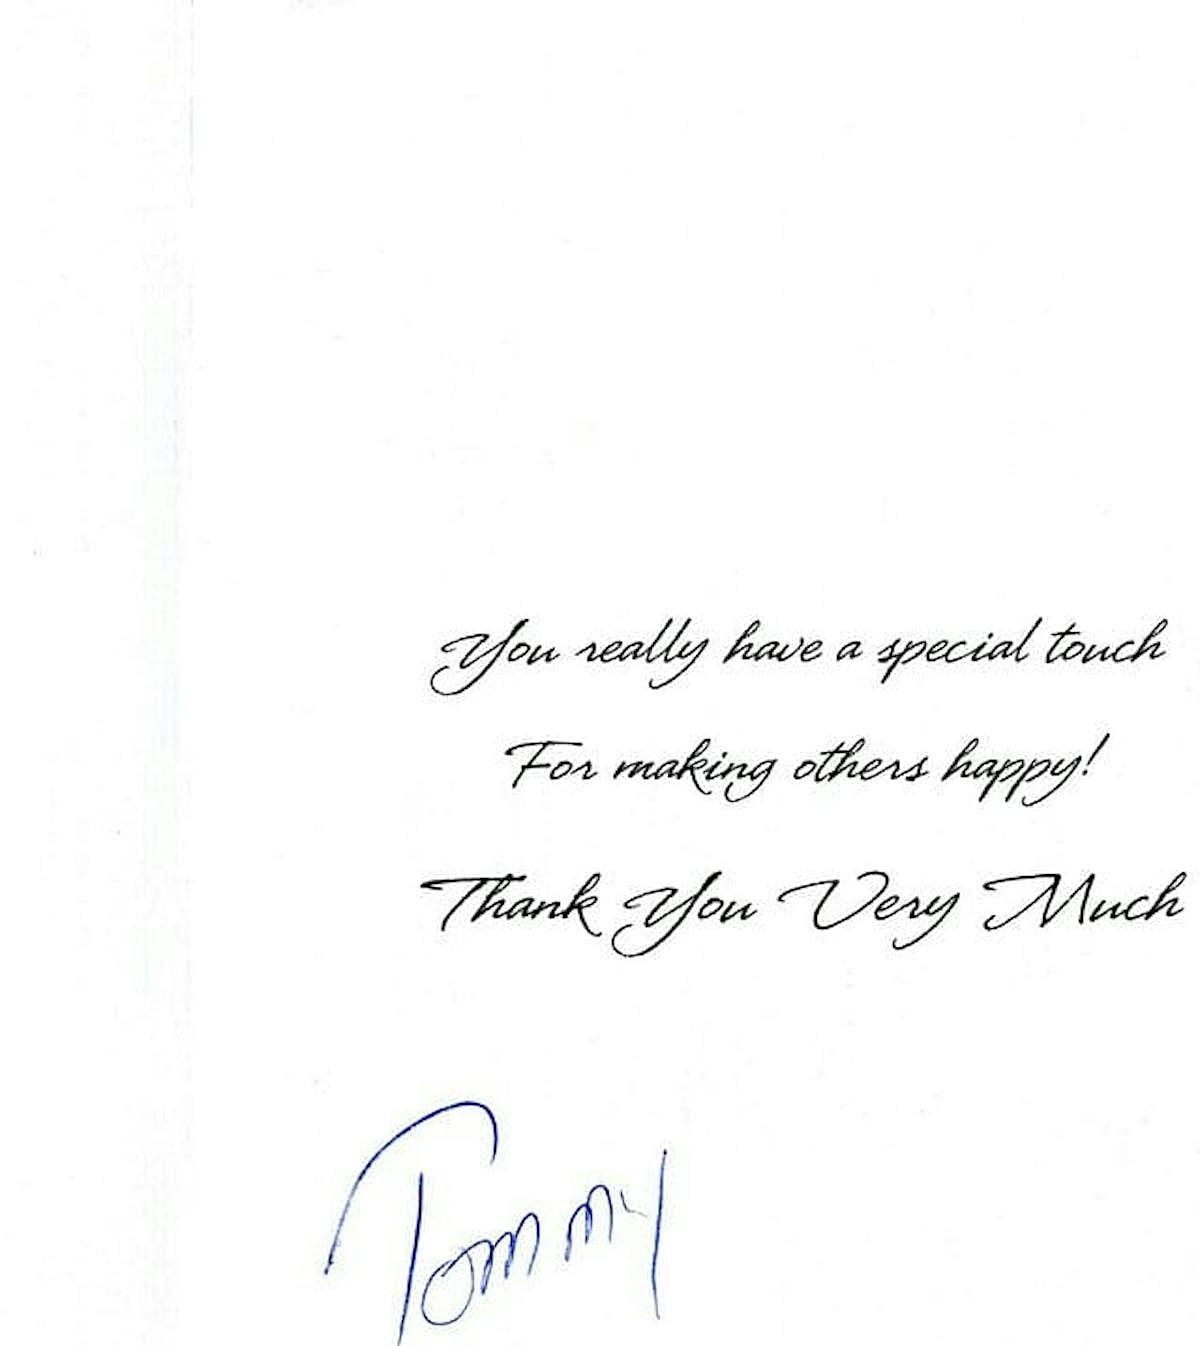 You really have a special touch
For making others happy!
Thank You Very Much
Tommy